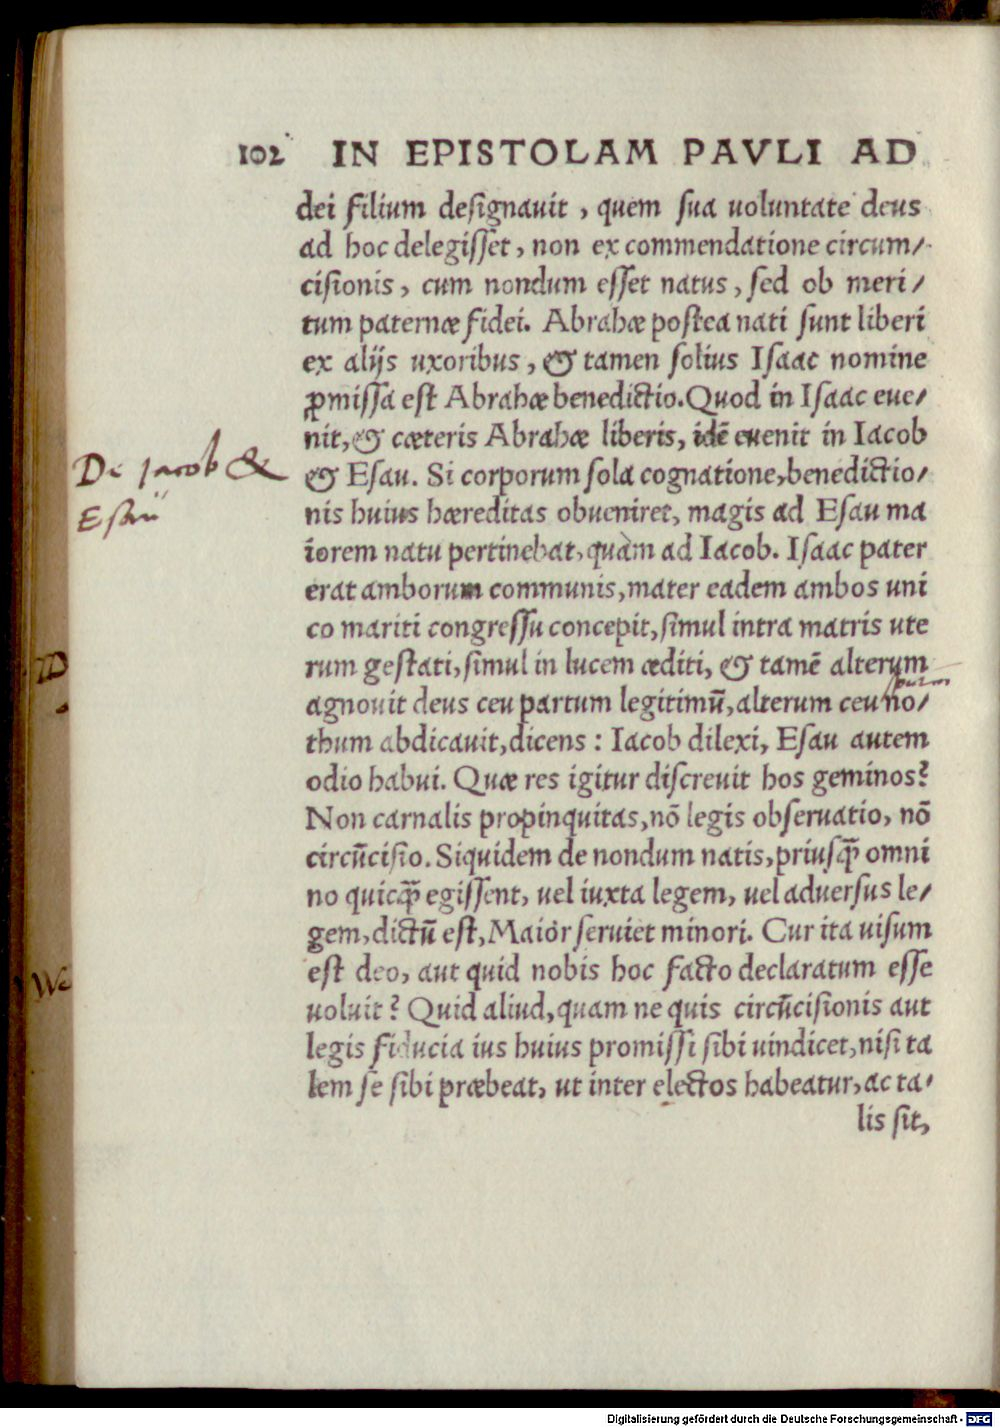 102 IN EPISTOLAM PAVLI AD
dei filium deſignauit, quem ſua uoluntate deus
ad hoc delegiſſet, non ex commendatione circum/
ciſionis, cum nondum eſſet natus, ſed ob meri/
tum paternæ fidei. Abrahæ poſtea nati ſunt liberi
ex alijs uxoribus, & tamen ſolius Iſaac nomine
ꝓmiſſa eſt Abrahæ benedictio. Quod in Iſaac eue/
nit, & cæteris Abrahæ liberis, idẽ euenit in Iacob
& Eſau. Si corporum ſola cognatione, benedictio/
nis huius hæreditas obueniret, magis ad Eſau ma
iorem natu pertinebat, quàm ad Iacob. Iſaac pater
erat amborum communis, mater eadem ambos uni
co mariti congreſſu concepit, ſimul intra matris ute
rum geſtati, ſimul in lucem æditi, & tamẽ alterum
agnouit deus ceu partum legitimũ, alterum ceu no/
thum abdicauit, dicens: Iacob dilexi, Eſau autem
odio habui. Quæ res igitur diſcreuit hos geminos?
Non carnalis propinquitas, nõ legis obſeruatio, nõ
circũciſio. Siquidem de nondum natis, priuſꝗ̃ omni
no quicꝗ̃ egiſſent, uel iuxta legem, uel aduerſus le/
gem, dictũ eſt, Maior ſeruiet minori. Cur ita uiſum
eſt deo, aut quid nobis hoc facto declaratum eſſe
uoluit? Quid aliud, quam ne quis circũciſionis aut
legis fiducia ius huius promiſſi ſibi uindicet, niſi ta
lem ſe ſibi præbeat, ut inter electos habeatur, ac ta/
lis ſit,
De Jacob &
Eſau
spurm
We
Digitalisierung gefördert durch die Deutsche Forschungsgemeinschaft - DFG